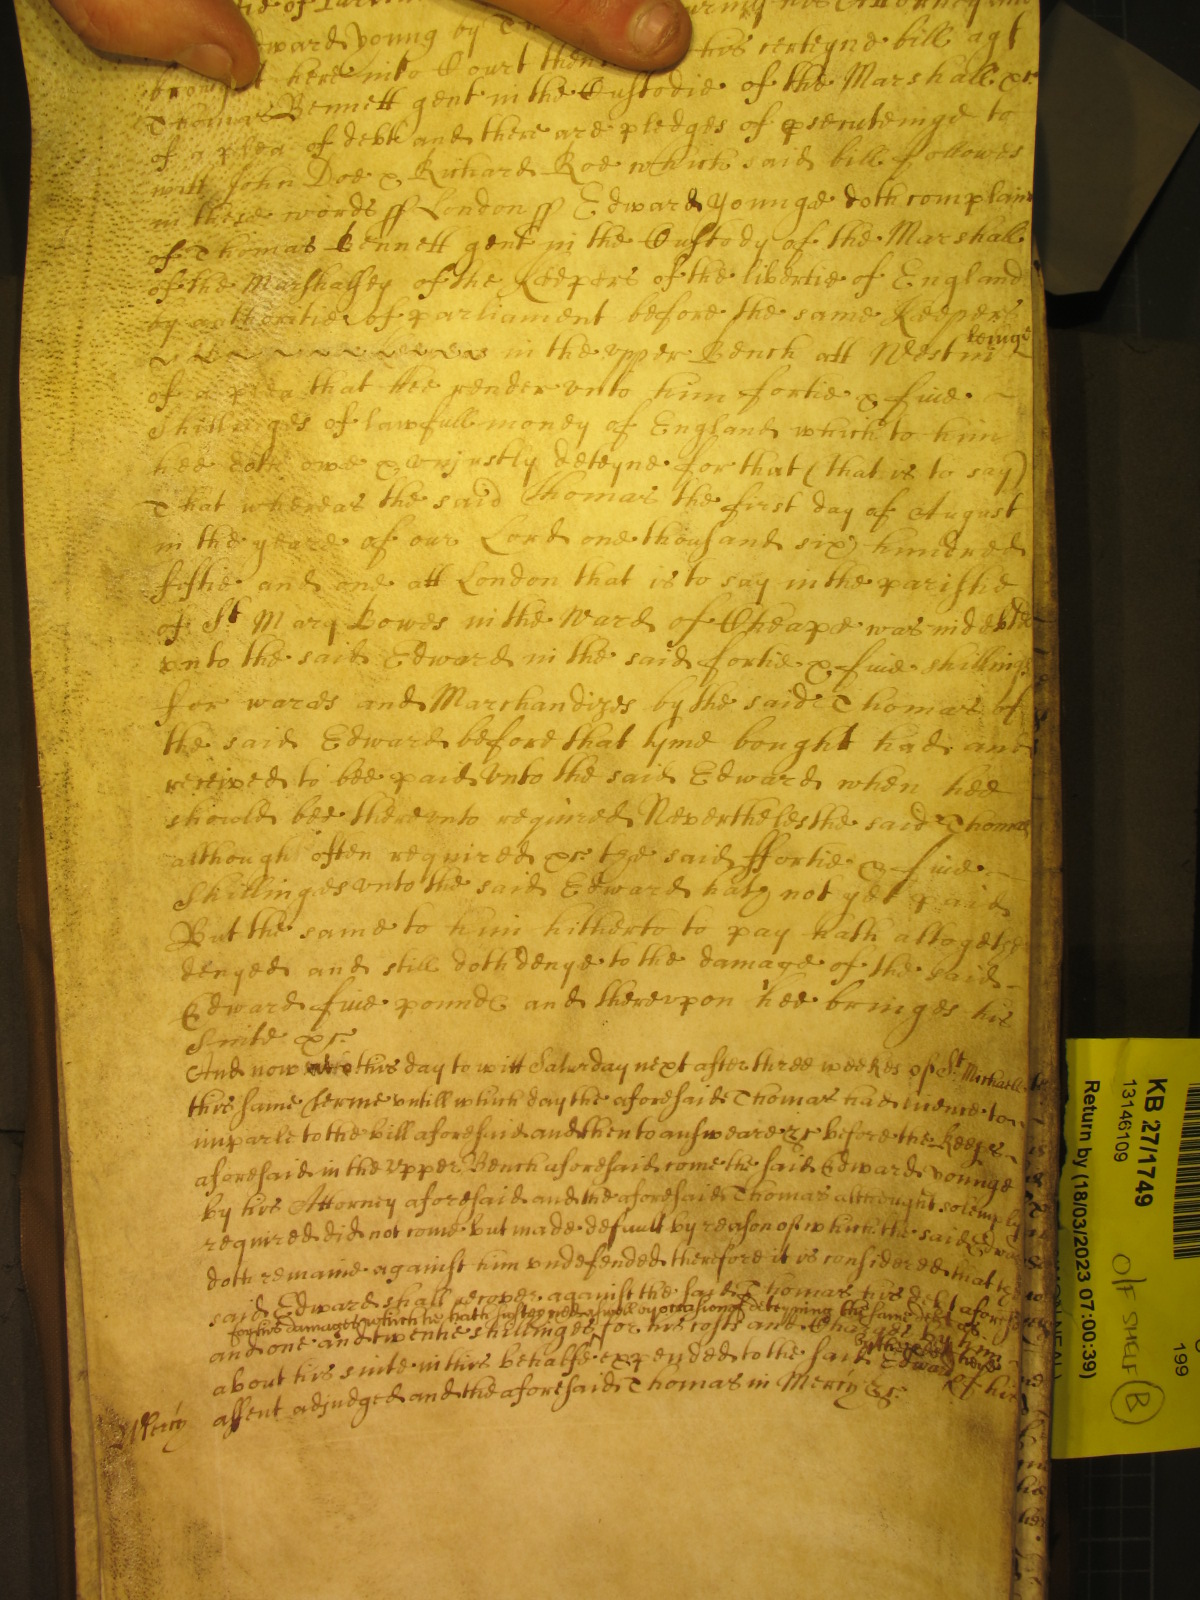 Edward Young by his certeyne bill agt
brought here into Court then
Thomas Bennett gent in the Custodie of the Marshall &c
of a plea of debt and there are pledges of psecuteinge to
witt John Doe & Richard Roe which said bill followes
in these words ss London ss Edward Younge doth complaine
of Thomas Bennett gent in the Custody of the Marshall
of the Marshalsey of the Keepers of the libertie of England
by authoritie of parliament before the same Keepers
beinge
in the upper Bench att Westm
of a plea that hee render vnto him fortie & fiue
Shillinges of lawfull money of England which to him
hee doth owe & vnjustly deteyne for that (that is to say)
That whereas the said Thomas the first day of August
in the yeare of our Lord one thousand six hundred
fiftie and one att London that is to say in the parishe
of St Mary Bowes in the Ward of Cheape was indebted
vnto the said Edward in the said fortie & fiue shillings
for wares and Marchandizes by the said Thomas of
the said Edward before that tyme bought had and
received to bee paid vnto the said Edward when hee
should bee therevnto required Neverthelesthe said Thomas
although often required &c the said ffortie & fiue
Shillinges vnto the said Edward hath not yet paid
But the same to him hitherto to pay hath altogether
denyed and still doth denye to the damage of the said
Edward fiue pounds and therevpon hee bringes his
Suite &c
And now att this day to witt Saturday next after three weekes of St Michaell
this same terme vntill which day the aforesaid Thomas had licence to
imparle to the bill aforesaid and then to answeare &c before the Keeps
aforesaid in the Vpper Bench aforesaid come the said Edward Younge
by his Attorney aforesaid and the aforesaid Thomas althought solemply
required did not come but made default by reason of which the said Edward
doth remaine against him vndefended therefore it is considered that the
said Edward shall recover against the said Thomas his debt aforesd
for his damages which he hath susteyned aswell by occasion of deteyning the same debt as
and one and twentie shillinges for his costs and Charges by him
by the Keepers heere
about his suite in this behalfe expended to the said Edward of his
assent adjudged and the aforesaid Thomas in Mercy &c
Mercy
KB 27/1749
13146109
Return by (18/03/2023 07:00:39)
OFF SHELF
B
199